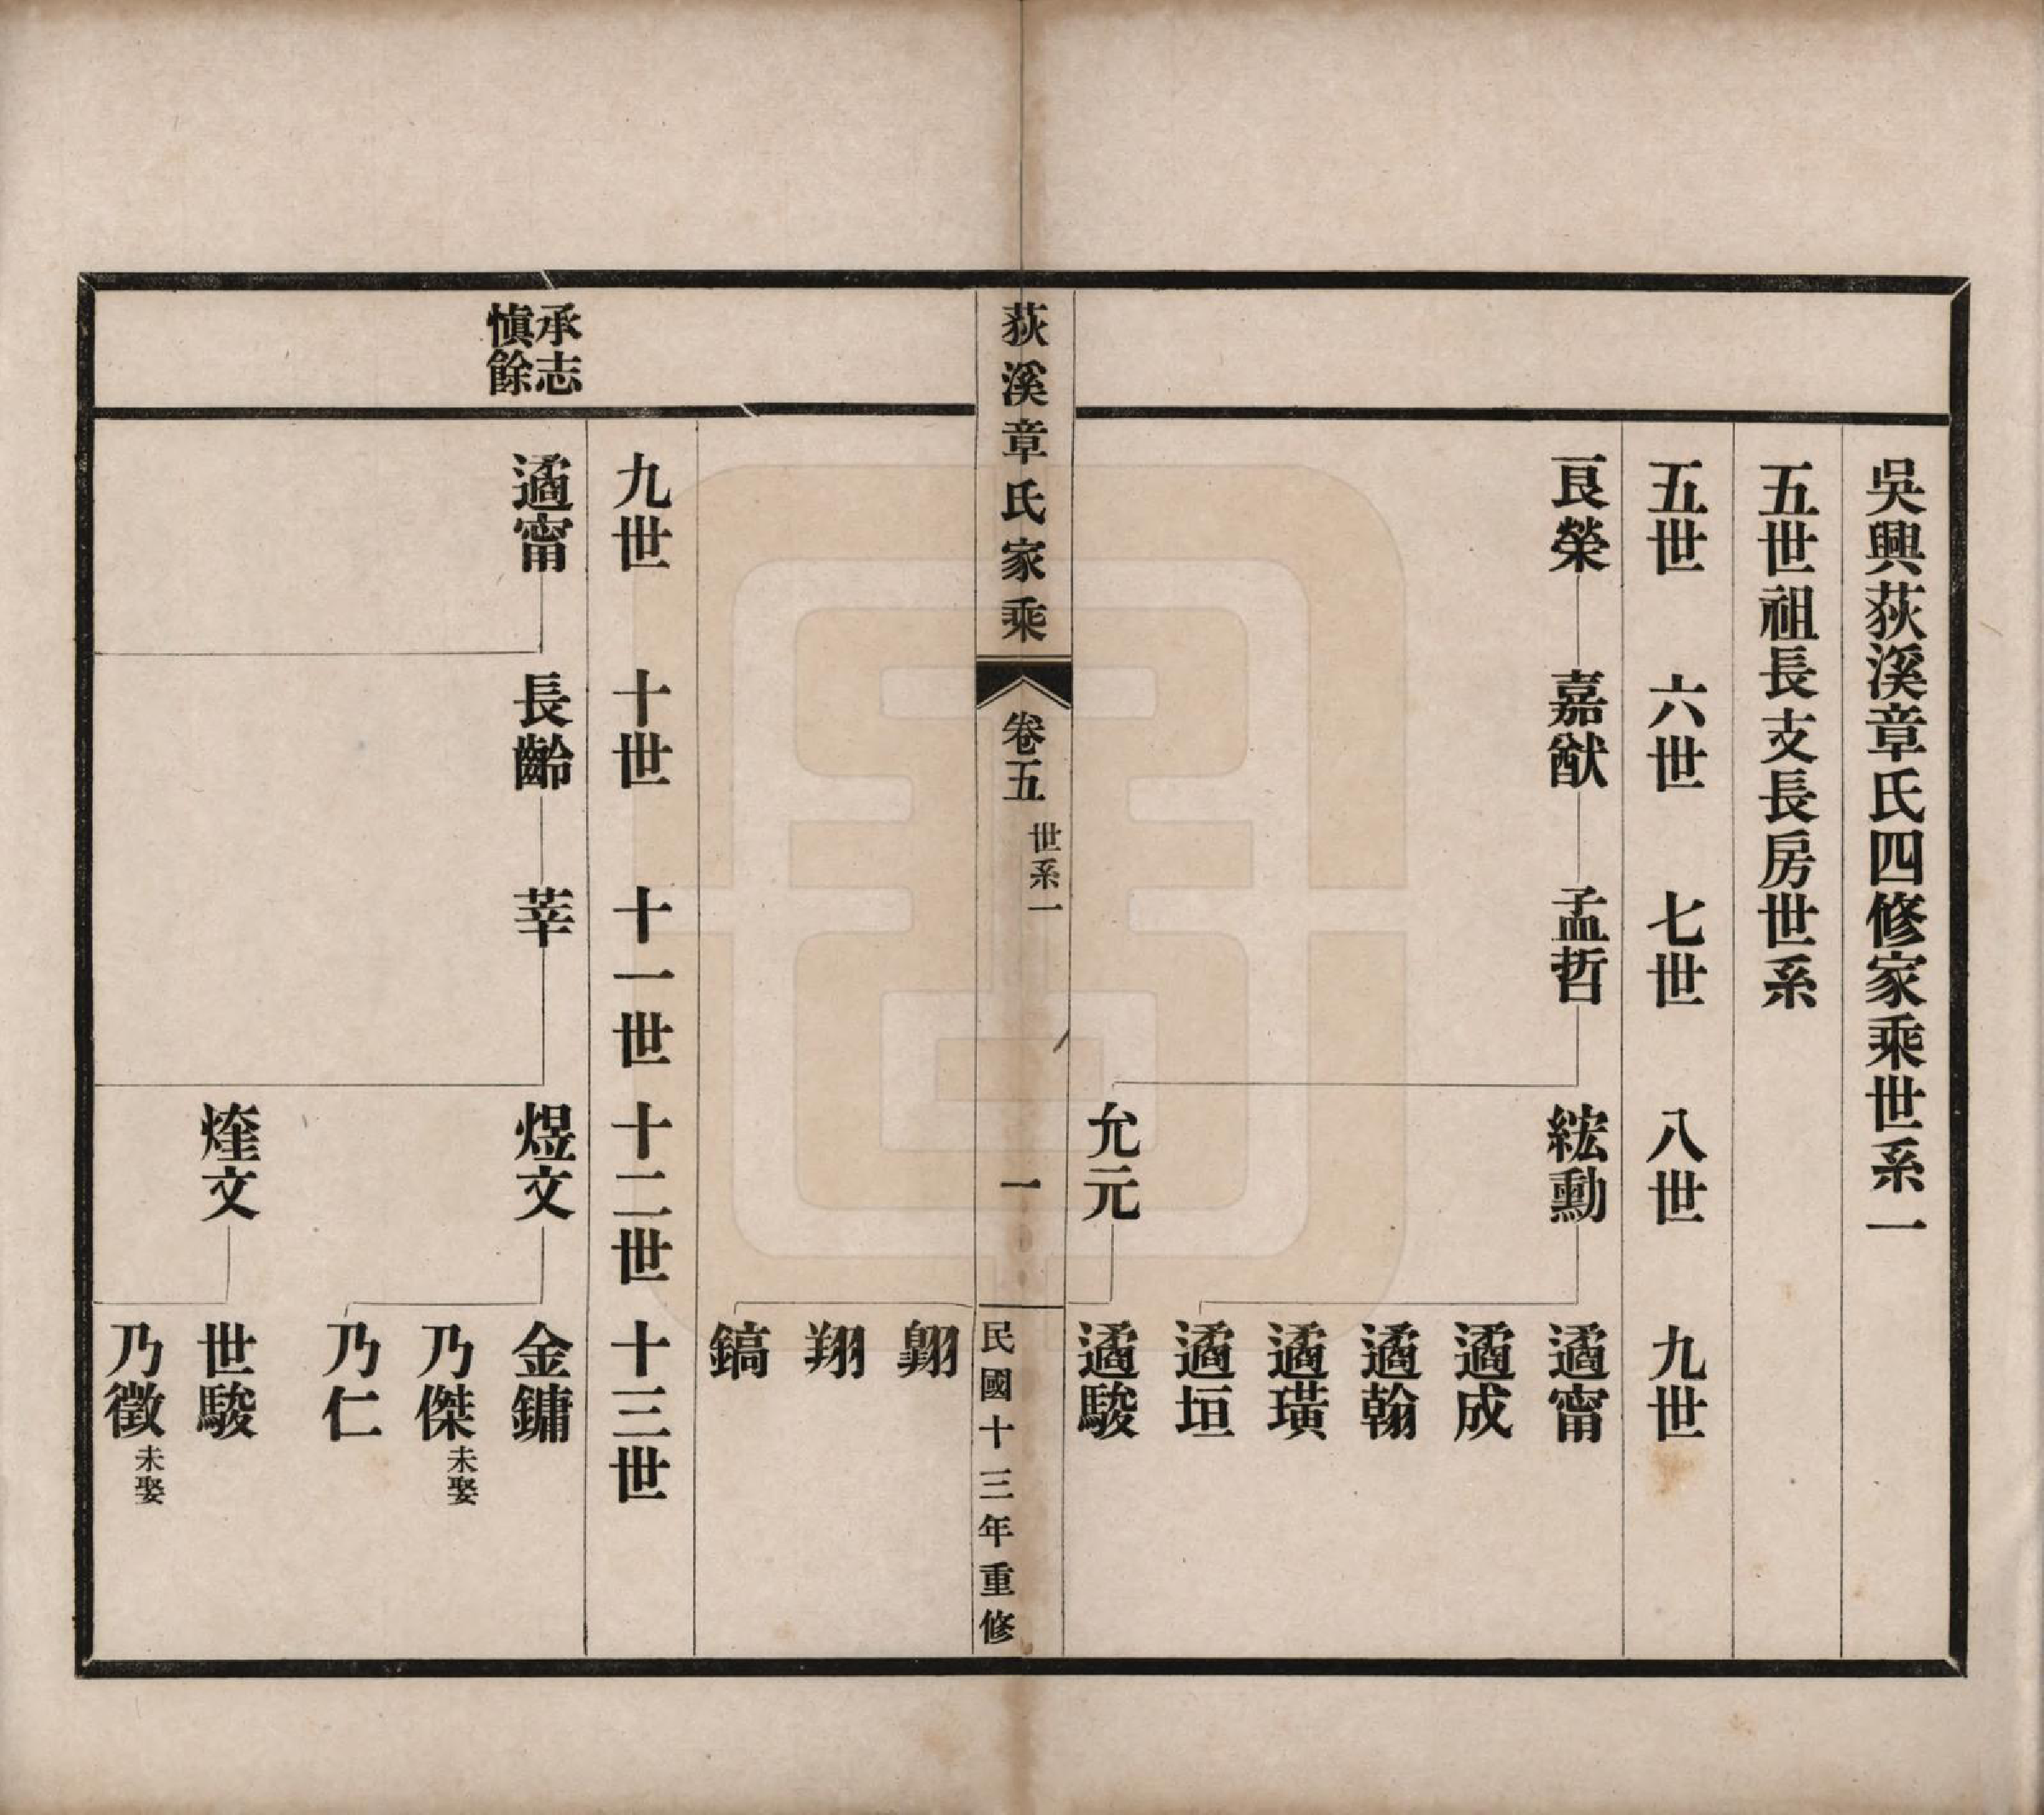 吳興荻溪章氏四修家乘世系一
五世祖長支長房世系
五世
六世
七世
八世
九世
良榮
嘉猷
孟哲
紘勳
遹甯
遹成
遹翰
遹璜
遹垣
允元
遹駿
荻溪章氏家乘
卷五
世系一
一
民國十三年重修
翺
翔
鎬
九世
十世
十一世
十二世
十三世
承志
愼餘
遹甯
長齡
莘
煜文
金鏞
乃傑
未娶
乃仁
煃文
世駿
乃徵
未娶